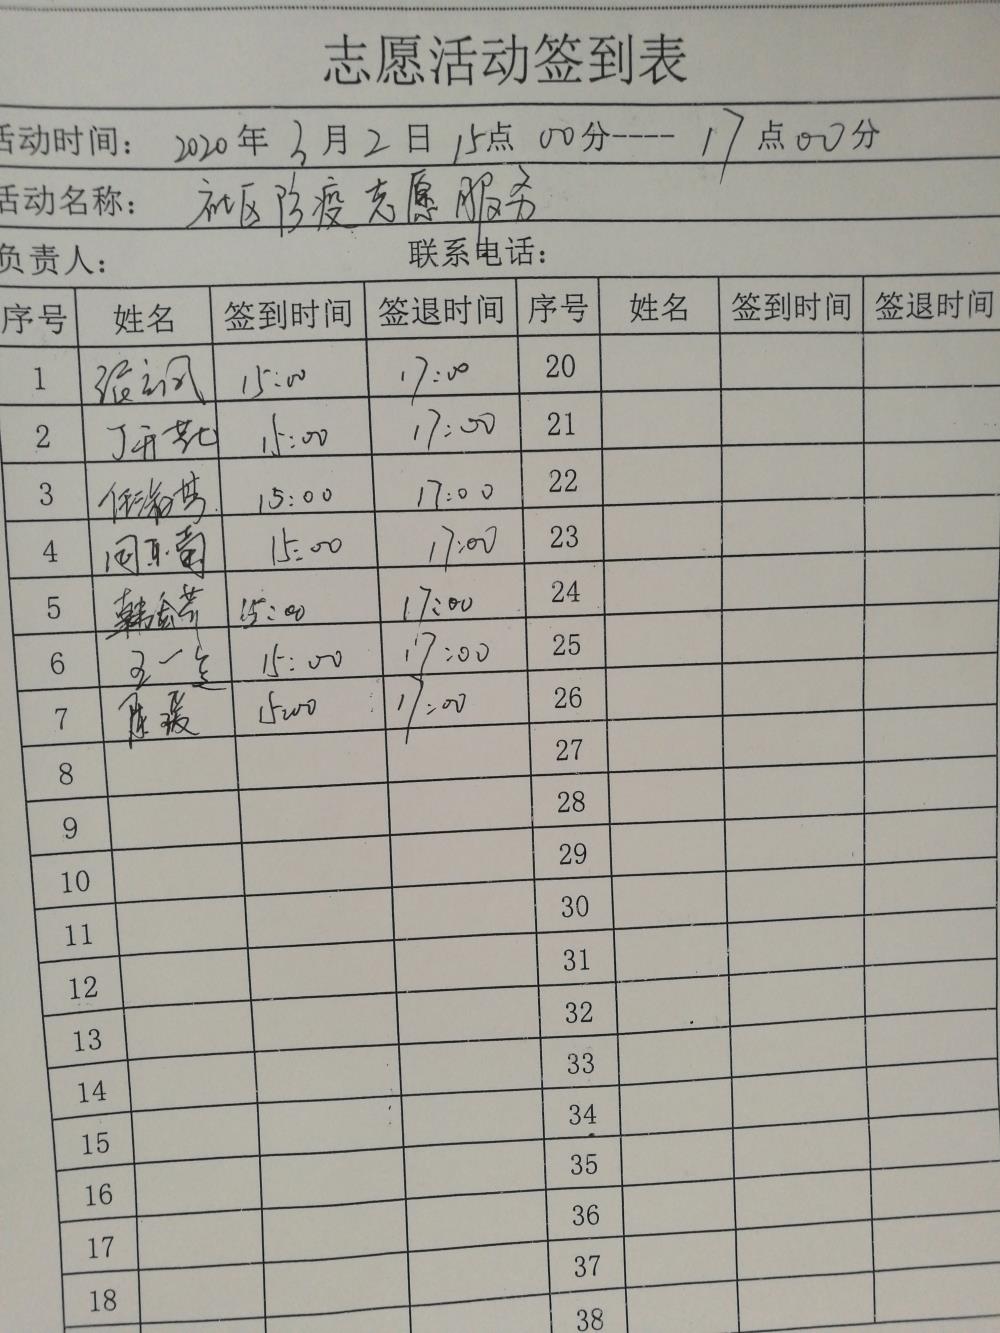 志愿活动签到表
活动时间：2020年3月2日15点00分----17点00分
活动名称：社区防疫志愿服务
负责人： 联系电话：
序号 姓名 签到时间 签退时间 序号 姓名 签到时间 签退时间
1 15:00 17:00 20
2 15:00 17:00 21
3 15:00 17:00 22
4 15:00 17:00 23
5 15:00 17:00 24
6 15:00 17:00 25
7 陈瑗 15:00 17:00 26
8 27
9 28
10 29
11 30
12 31
13 32
14 33
15 34
16 35
17 36
18 37
38